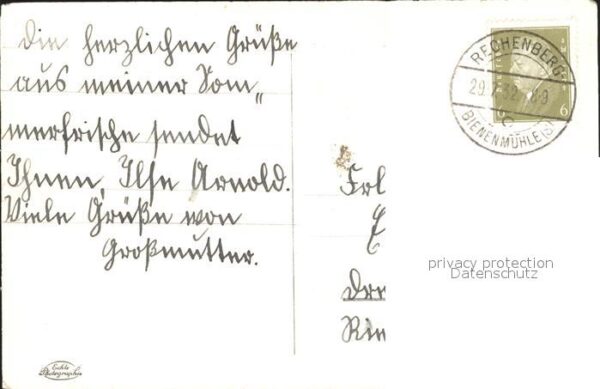 Die herzlichen Grüße
aus meiner Som„
merfrische sendet
Ihnen, Ilse Arnold.
Viele Grüße von
Großmutter.
Echte
Photographie
RECHENBERG-
29. 7. 32. 8-9
BIENENMÜHLE
6
Frl
Dre
privacy protection
Datenschutz